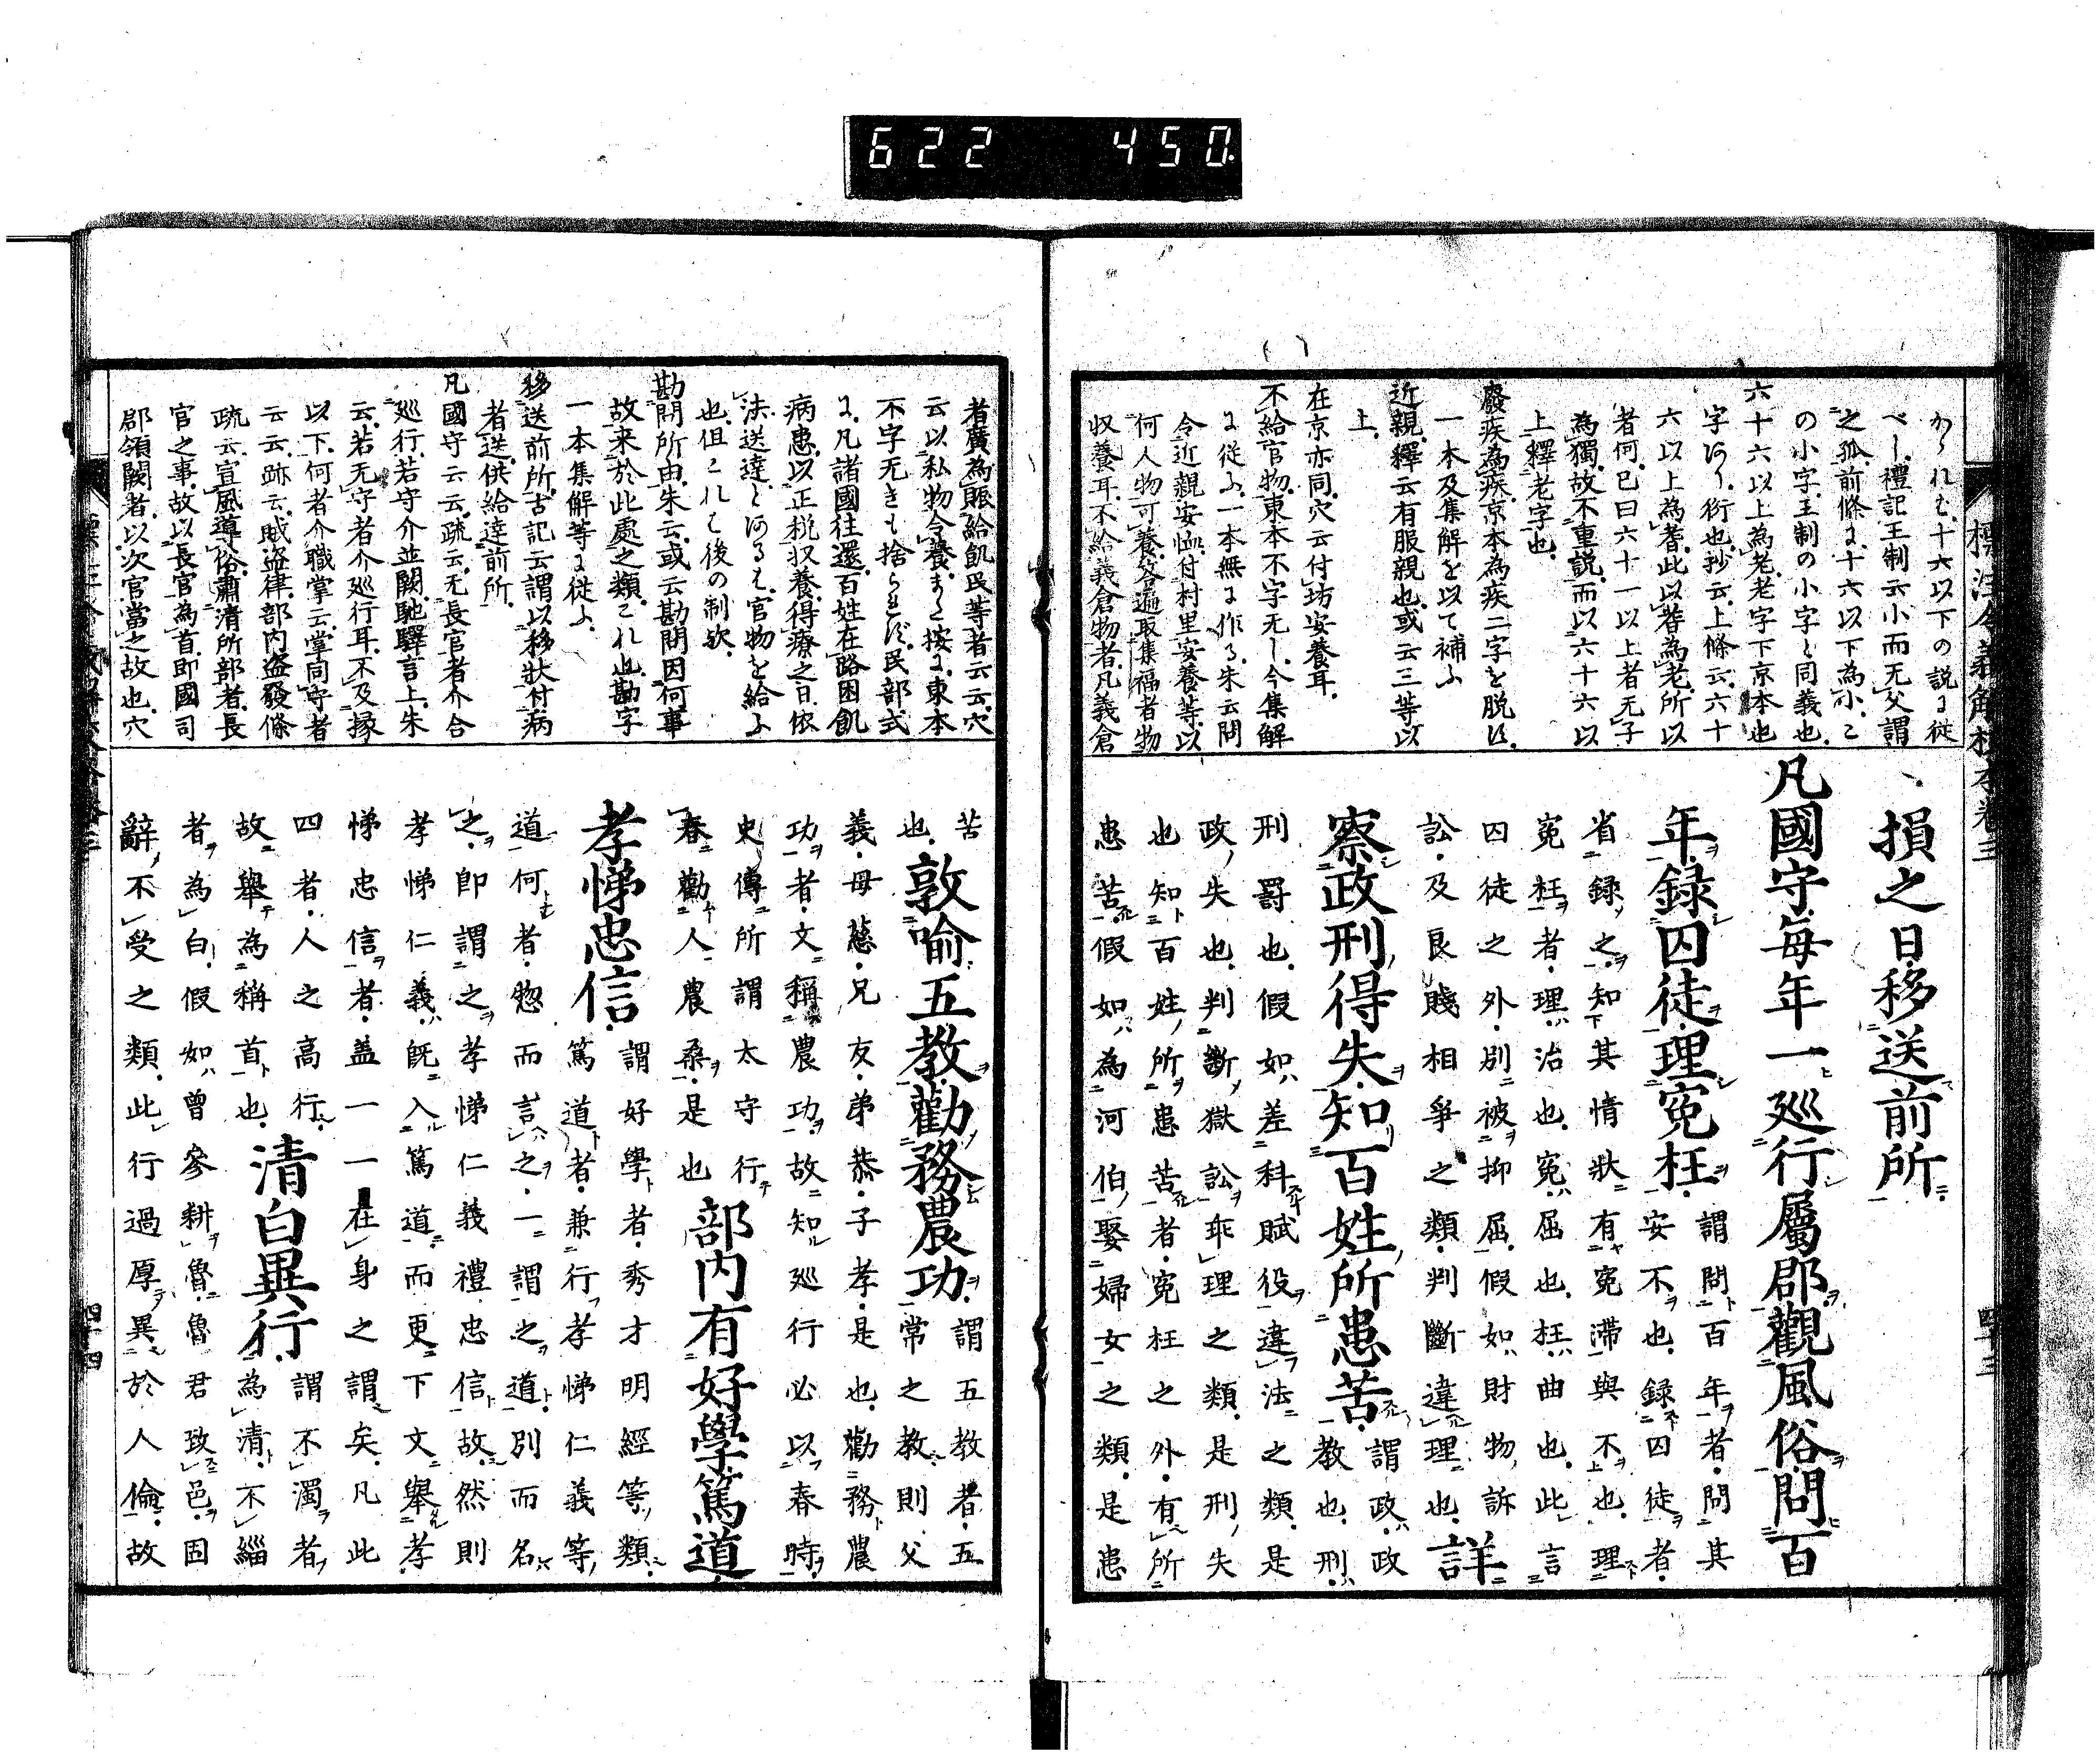 622 450
標注令義解校本卷三
かゝれむ、十六以下の説に従
べし、禮記王制云小而无父謂
之孤、前條に十六以下為小、こ
の小字、王制の小字と同義也、
六十六以上為老、老字下京本也
字あり、衍也、抄云、上條云、六十
六以上為耆、此以耆為老、所以
者何、已曰六十一以上者无子
為獨、故不重説、而以六十六以
上釋老字也、
癈疾為疾、京本為疾二字を脱す、
一本及集解を以て補ふ
近親、釋云有服親也、或云三等以
上、
在京亦同、穴云付坊安養耳、
不給官物、東本不字无し、今集解
に従ふ、一本無に作る、朱云問
令近親安恤付村里安養等、以
何人物可養、答遍取集福者物
収養耳、不給義倉物者、凡義倉
損之日、移送前所、
凡國守、每年一巡行屬郡、觀風俗、問百
年、録囚徒、理寃枉、
謂問百年者、問其
安不也、録囚徒者、
省録之、知其情狀有寃滯與不也、理
寃枉者、理治也、寃屈也、枉曲也、此言
囚徒之外、別被抑屈、假如、財物訴
訟、及良賤相爭之類、判斷違理也、詳
察政刑得失、知百姓所患苦、
謂政、政
教也、刑、
刑罸也、假如、差科賦役、違法之類、是
政失也、判斷獄訟、乖理之類、是刑失
也、知百姓所患苦者、寃枉之外、有所
患苦、假如、為河伯娶婦女之類、是患
四十三
者廣為賑給飢民等者云云、穴
云以私物令養、また按に、東本
不字无きも捨られず、民部式
に、凡諸國往還百姓在路困飢
病患、以正税収養、得療之日、依
法送達とあるは、官物を給ふ
也、但これは後の制歟、
勘問所由、朱云、或云勘問因何事
故来於此處之類、これ也、勘字
一本集解等に従ふ、
移送前所、古記云謂以移狀付病
者送、供給達前所、
凡國守云云、疏云、无長官者介合
巡行、若守介並闕、馳驛言上、朱
云、若无守者介巡行耳、不及掾
以下、何者介職掌云、掌同守者
云云、跡云、賊盗律、部内盗發條
疏云、宣風導俗、肅清所部者、長
官之事、故以長官為首、即國司
郡領闕者、以次官當之故也、穴
苦
也、敦喻五教、勸務農功、
謂五教者、五
常之教、則父
義、母慈、兄友、弟恭、子孝、是也、勸務農
功者、文稱農功、故知巡行必以春時、
史傳所謂太守行
春、勸人農桑是也
部内有好學篤道
孝悌忠信、
謂好學者、秀才明經等類、
篤道者、兼行孝悌仁義等
道、何者、惣而言之、一謂之道、別而名
之、即謂之孝悌仁義禮忠信、故然則
孝悌仁義、既入篤道、而更下文、舉孝
悌忠信者、蓋一一在身之謂矣、凡此
四者、人之高行、
故舉為稱首也、清白異行、
謂不濁者、
為清、不緇
者、為白、假如、曾參耕魯、魯君致邑、固
辭不受之類、此行過厚異於人倫、故
四十四